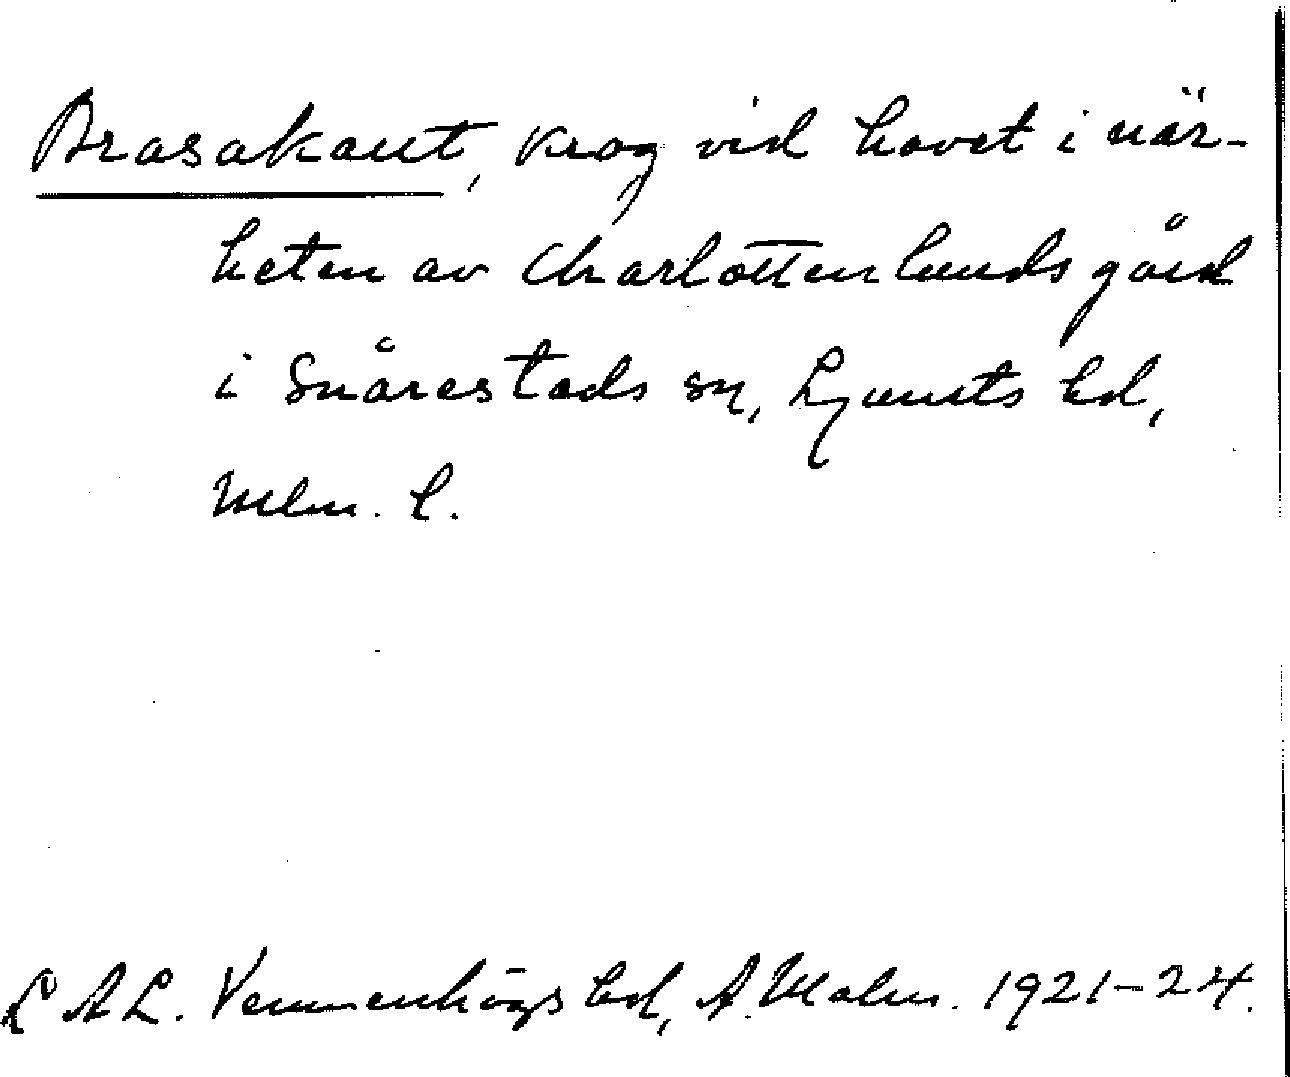 Brasakaut, krog vid havet i när-
heten av Charlottenlunds gård
i Snårestads sn, Ljunits hd,
Mlm. l.
LAL. Vemmenhögs hd, A. Malm. 1921-24.